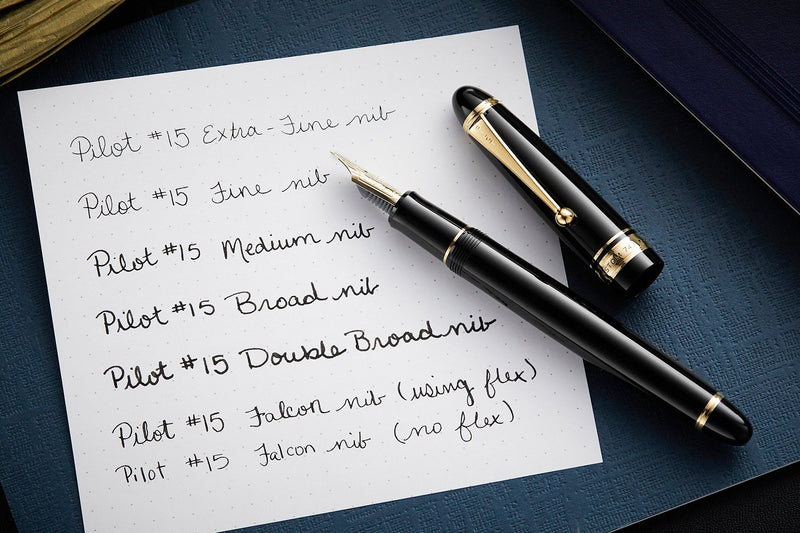 Pilot #15 Extra-Fine nib
Pilot #15 Fine nib
Pilot #15 Medium nib
Pilot #15 Broad nib
Pilot #15 Double Broad nib
Pilot #15 Falcon nib (using flex)
Pilot #15 Falcon nib (no flex)